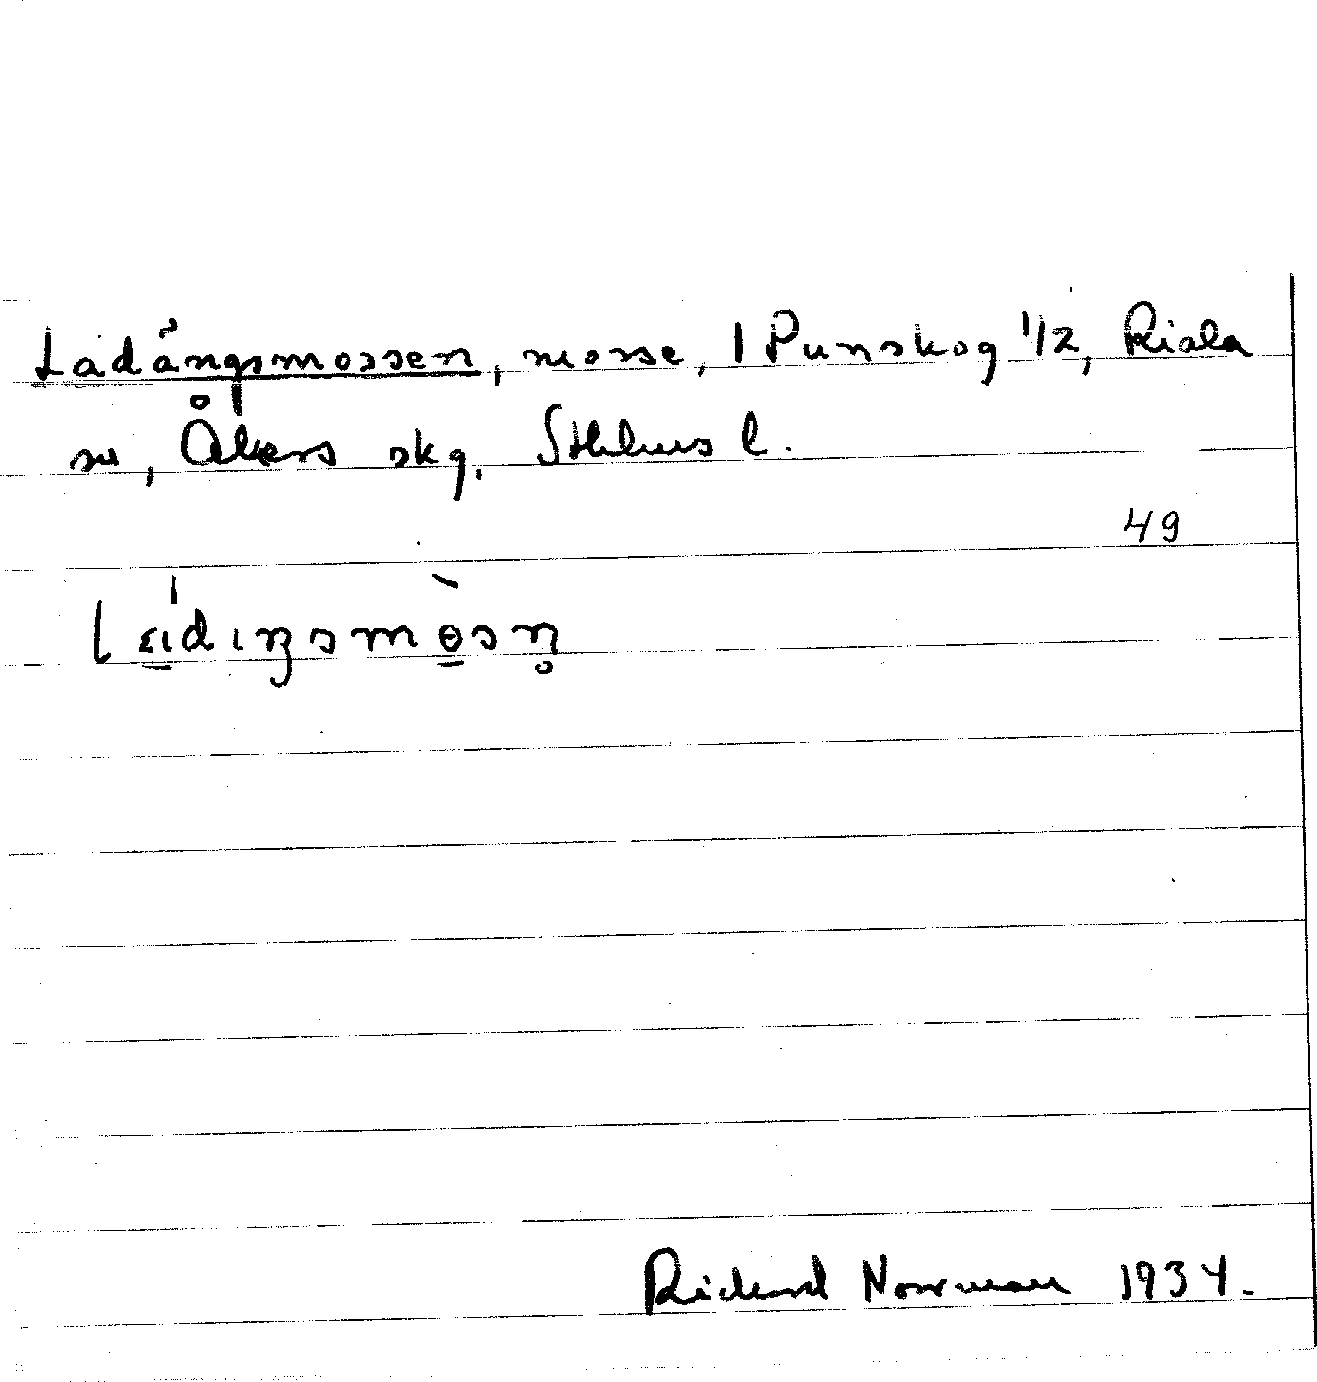 Ladängsmossen, mosse, 1 Punskog 1/2, Riala
sn, Åkers skg, Sthlms l.
49
Richard Norrman 1934.